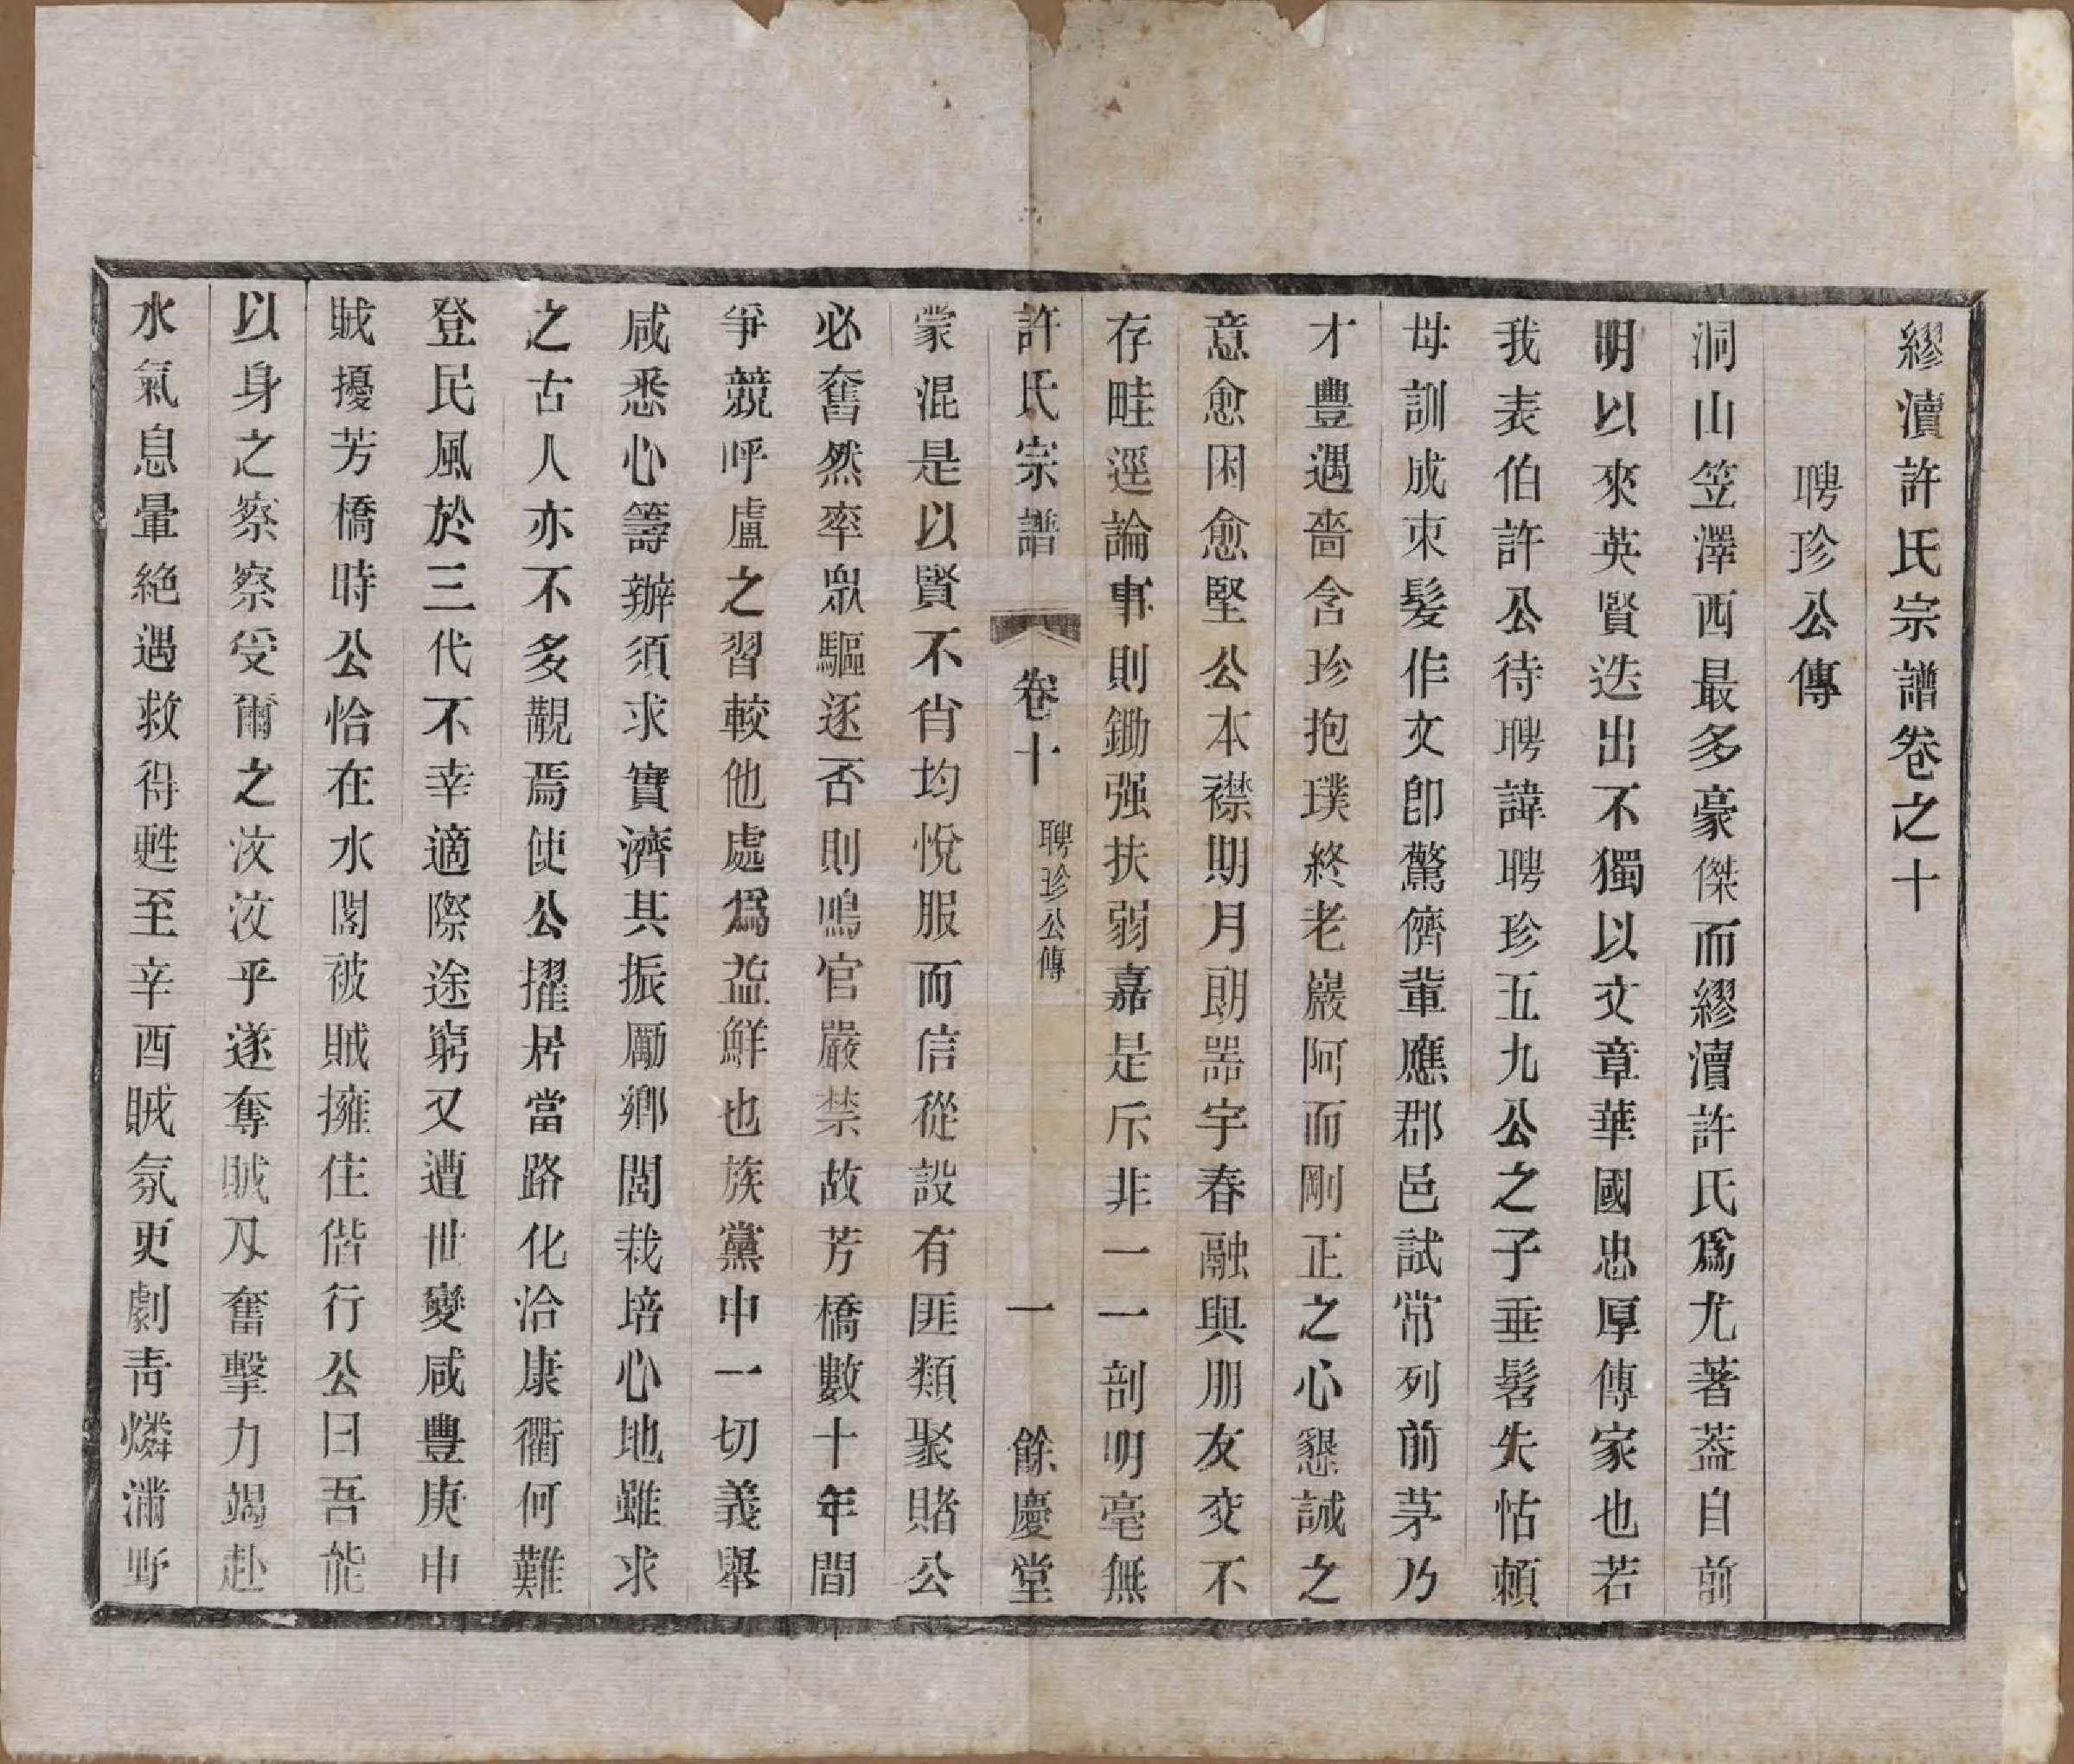 繆瀆許氏宗譜卷之十
聘珍公傳
洞山笠澤西最多豪傑而繆瀆許氏爲尤著葢自前
明以來英賢迭出不獨以文章華國忠厚傳家也若
我表伯許公待聘諱聘珍五九公之子垂髫失怙賴
母訓成束髮作文卽驚儕輩應郡邑試常列前茅乃
才豐遇嗇含珍抱璞終老巖阿而剛正之心懇誠之
意愈困愈堅公本襟期月朗器宇春融與朋友交不
存畦逕論事則鋤强扶弱嘉是斥非一一剖明毫無
許氏宗譜 卷十 聘珍公傳 一 餘慶堂
蒙混是以賢不肖均悅服而信從設有匪類聚賭公
必奮然率眾驅逐否則鳴官嚴禁故芳橋數十年間
爭競呼盧之習較他處爲益鮮也族黨中一切義舉
咸悉心籌辦須求實濟其振勵鄉閭栽培心地雖求
之古人亦不多覯焉使公擢居當路化洽康衢何難
登民風於三代不幸適際途窮又遭世變咸豐庚申
賊擾芳橋時公恰在水閣被賊擁住偕行公曰吾能
以身之察察受爾之汶汶乎遂奪賊刄奮擊力竭赴
水氣息暈絶遇救得甦至辛酉賊氛更劇靑燐滿野